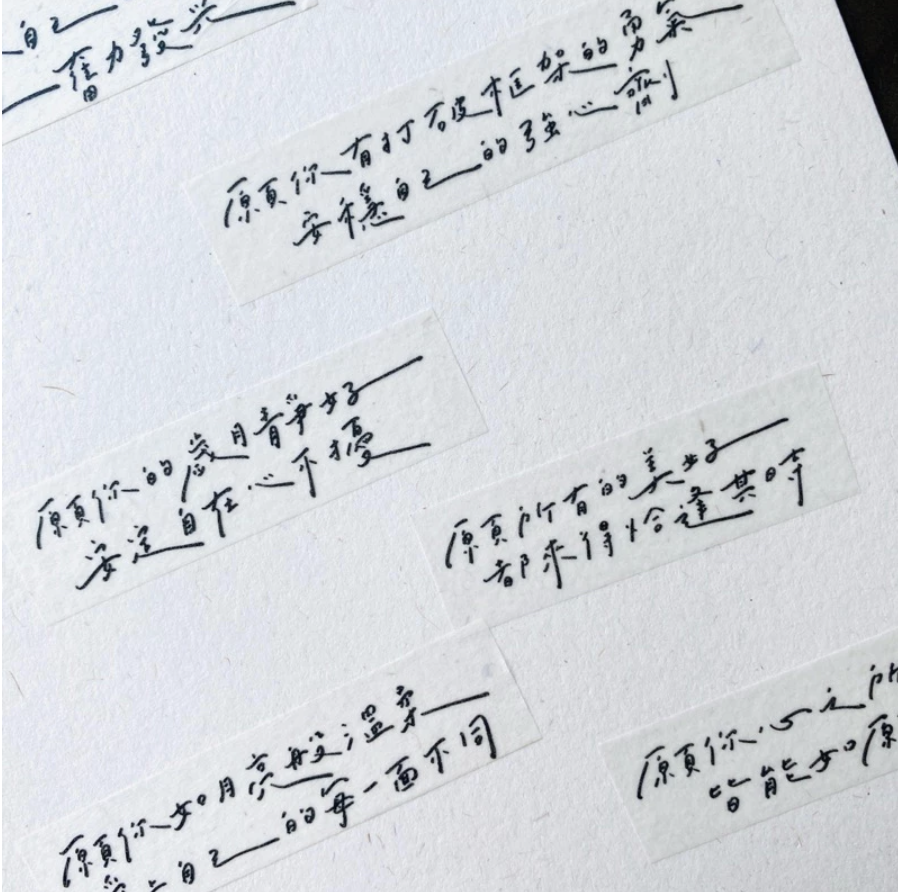 自己
奮力發光
願你有打破框架的勇氣
安穩自己的強心劑
願你的歲月靜好
安定自在心不擾
願所有的美好
都來得恰逢其時
願你如月亮般溫柔
自己的每一面不同
願你心之所
皆能如願